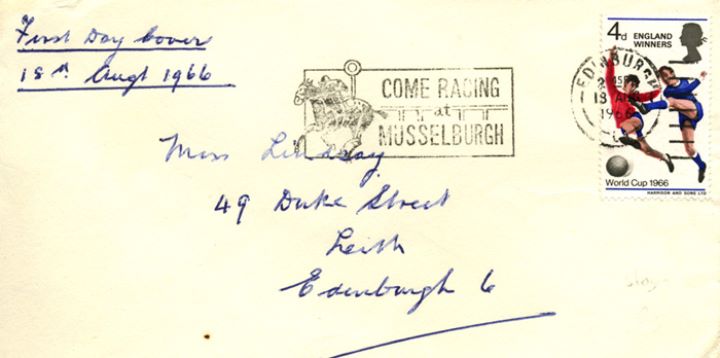 First Day Cover
18th Augt 1966
COME RACING
at
MUSSELBURGH
EDINBURGH
18 AUG
1966
4d ENGLAND
WINNERS
World Cup 1966
HARRISON AND SONS LTD
Miss Lindsay
49 Duke Street
Leith
Edinburgh 6